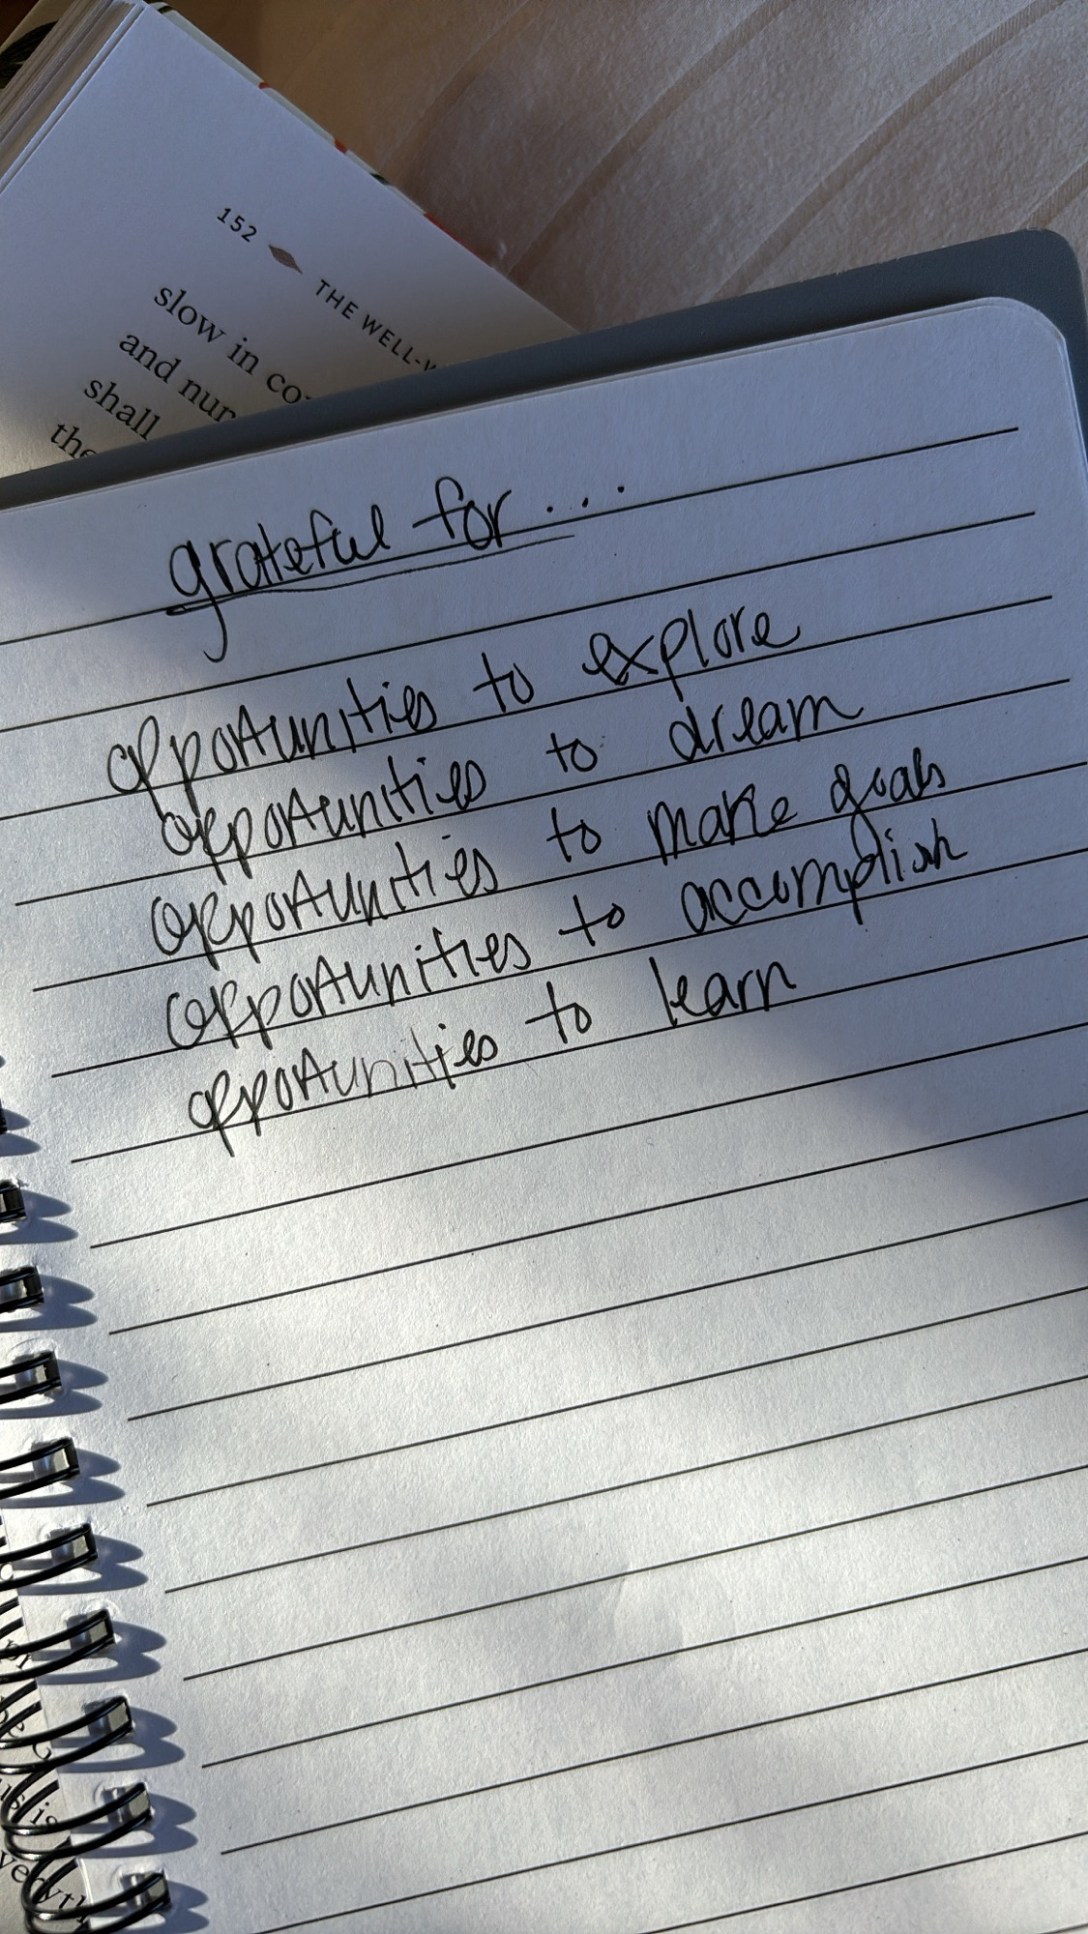 152 THE WELL-
slow in co
and nur
shall
the
grateful for...
opportunities to explore
opportunities to dream
opportunities to make goals
opportunities to accomplish
opportunities to learn